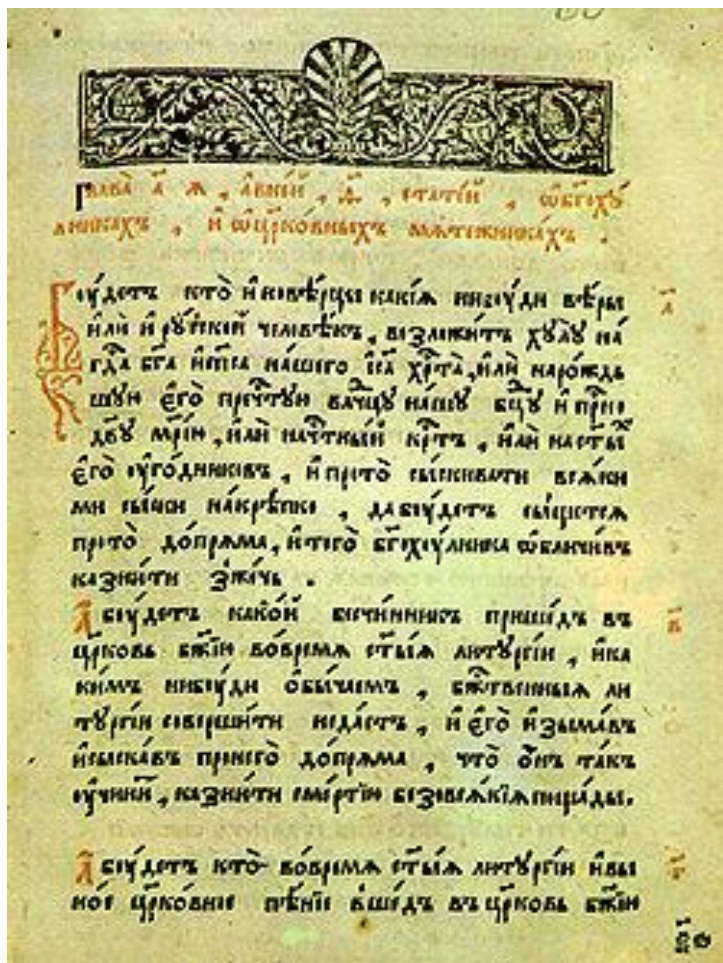 глава̀ а҃ ꙗ , а҆вне́й , д҃ , стате́й , ѡ҆бг҃охꙋ́
лникахъ , и҆ ѡ҆цр҃ко́вныхъ мѧте́жникахъ .
Бꙋ́детъ кто̀ и҆новѣ́рцы какі́ѧ нибꙋди вѣ́ры
и҆лѝ и҆ рꙋ́ской человѣ́къ , возложи́тъ хꙋлꙋ̀ на
гд҃а бг҃а и҆ сп҃са на́шего і҆с҃а хрⷭ҇та̀ , и҆лѝ наро́ждь
шꙋю є҆го̀ пречⷭ҇тꙋю влⷣчцꙋ на́шꙋ бц҃ꙋ и҆ при́сно
дв҃ꙋ мр҃і́ю , и҆лѝ начⷭ҇тны́й крⷭ҇тъ , и҆лѝ на ст҃ы́хъ
є҆го̀ ᲂу҆го́дниковъ , и҆ прото̀ сы́скивати всѧ́ки
ми сы́ски на́крѣпко , да бꙋ́детъ сы́щетсѧ
прото̀ до́прѧма , и҆ того̀ бг҃охꙋ́лника ѡ҆бличи́въ
казни́ти зже́чь .
А҆ бꙋ́детъ како́й безчи́нникъ прише́дъ въ
цр҃ковь бж҃ію во́времѧ ст҃ы́ѧ литꙋргі́и , и҆ ка
ки́мъ нибꙋди ѻ҆бы́чаемъ , бжⷭ҇твенныѧ ли
тꙋргі́и соверши́ти неда́стъ , и҆ є҆го̀ и҆зыма́въ
и҆ сыска́въ пронего̀ до́прѧма , что̀ ѻ҆́нъ та́къ
ᲂу҆чини́тъ , казни́ти сме́ртію безовсѧ́кіѧ поща́ды .
А҆ бꙋ́детъ кто̀ во́времѧ ст҃ы́ѧ литꙋргі́и и҆ вы
но́е цр҃ко́вное пѣ́ніе вше́дъ въ цр҃ковь бж҃ію